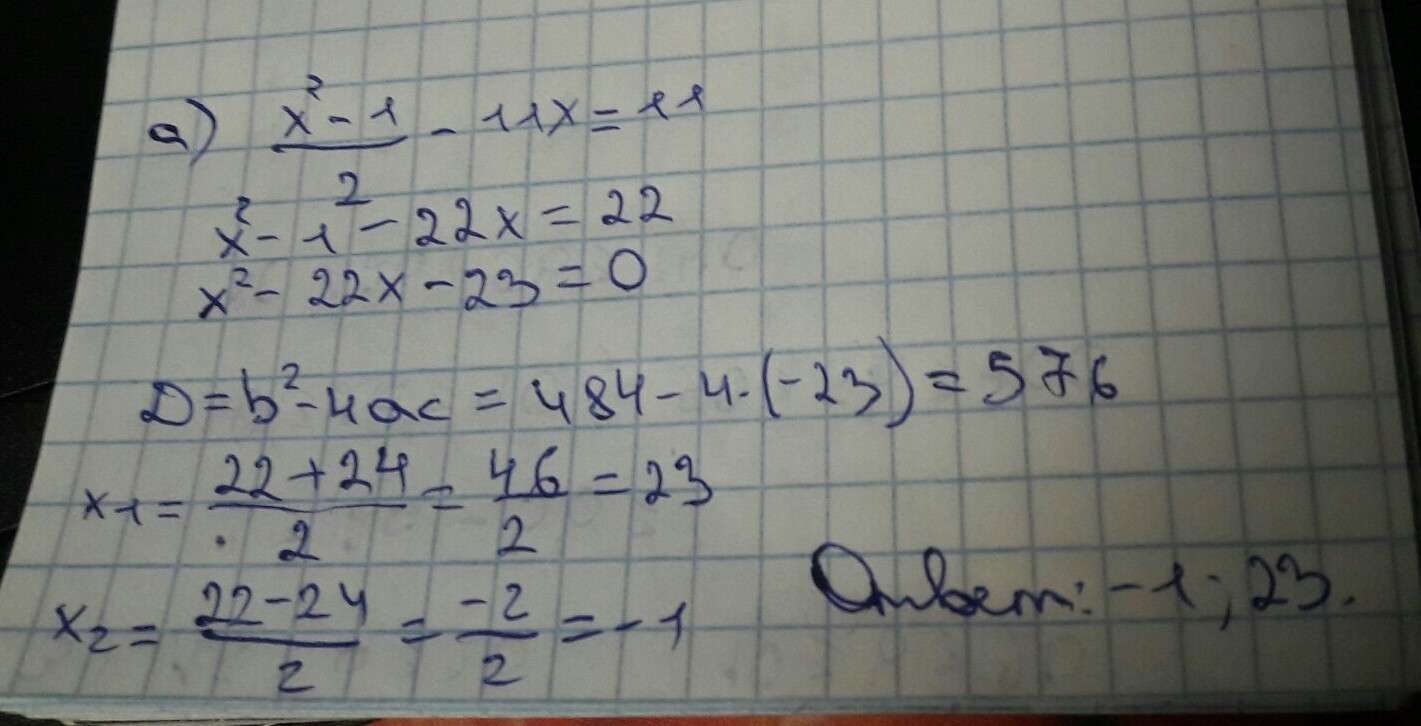 а) (x² - 1)/2 - 11x = 11
x² - 1 - 22x = 22
x² - 22x - 23 = 0
D = b² - 4ac = 484 - 4·(-23) = 576
x₁ = (22 + 24)/2 = 46/2 = 23
x₂ = (22 - 24)/2 = -2/2 = -1
Ответ: -1; 23.